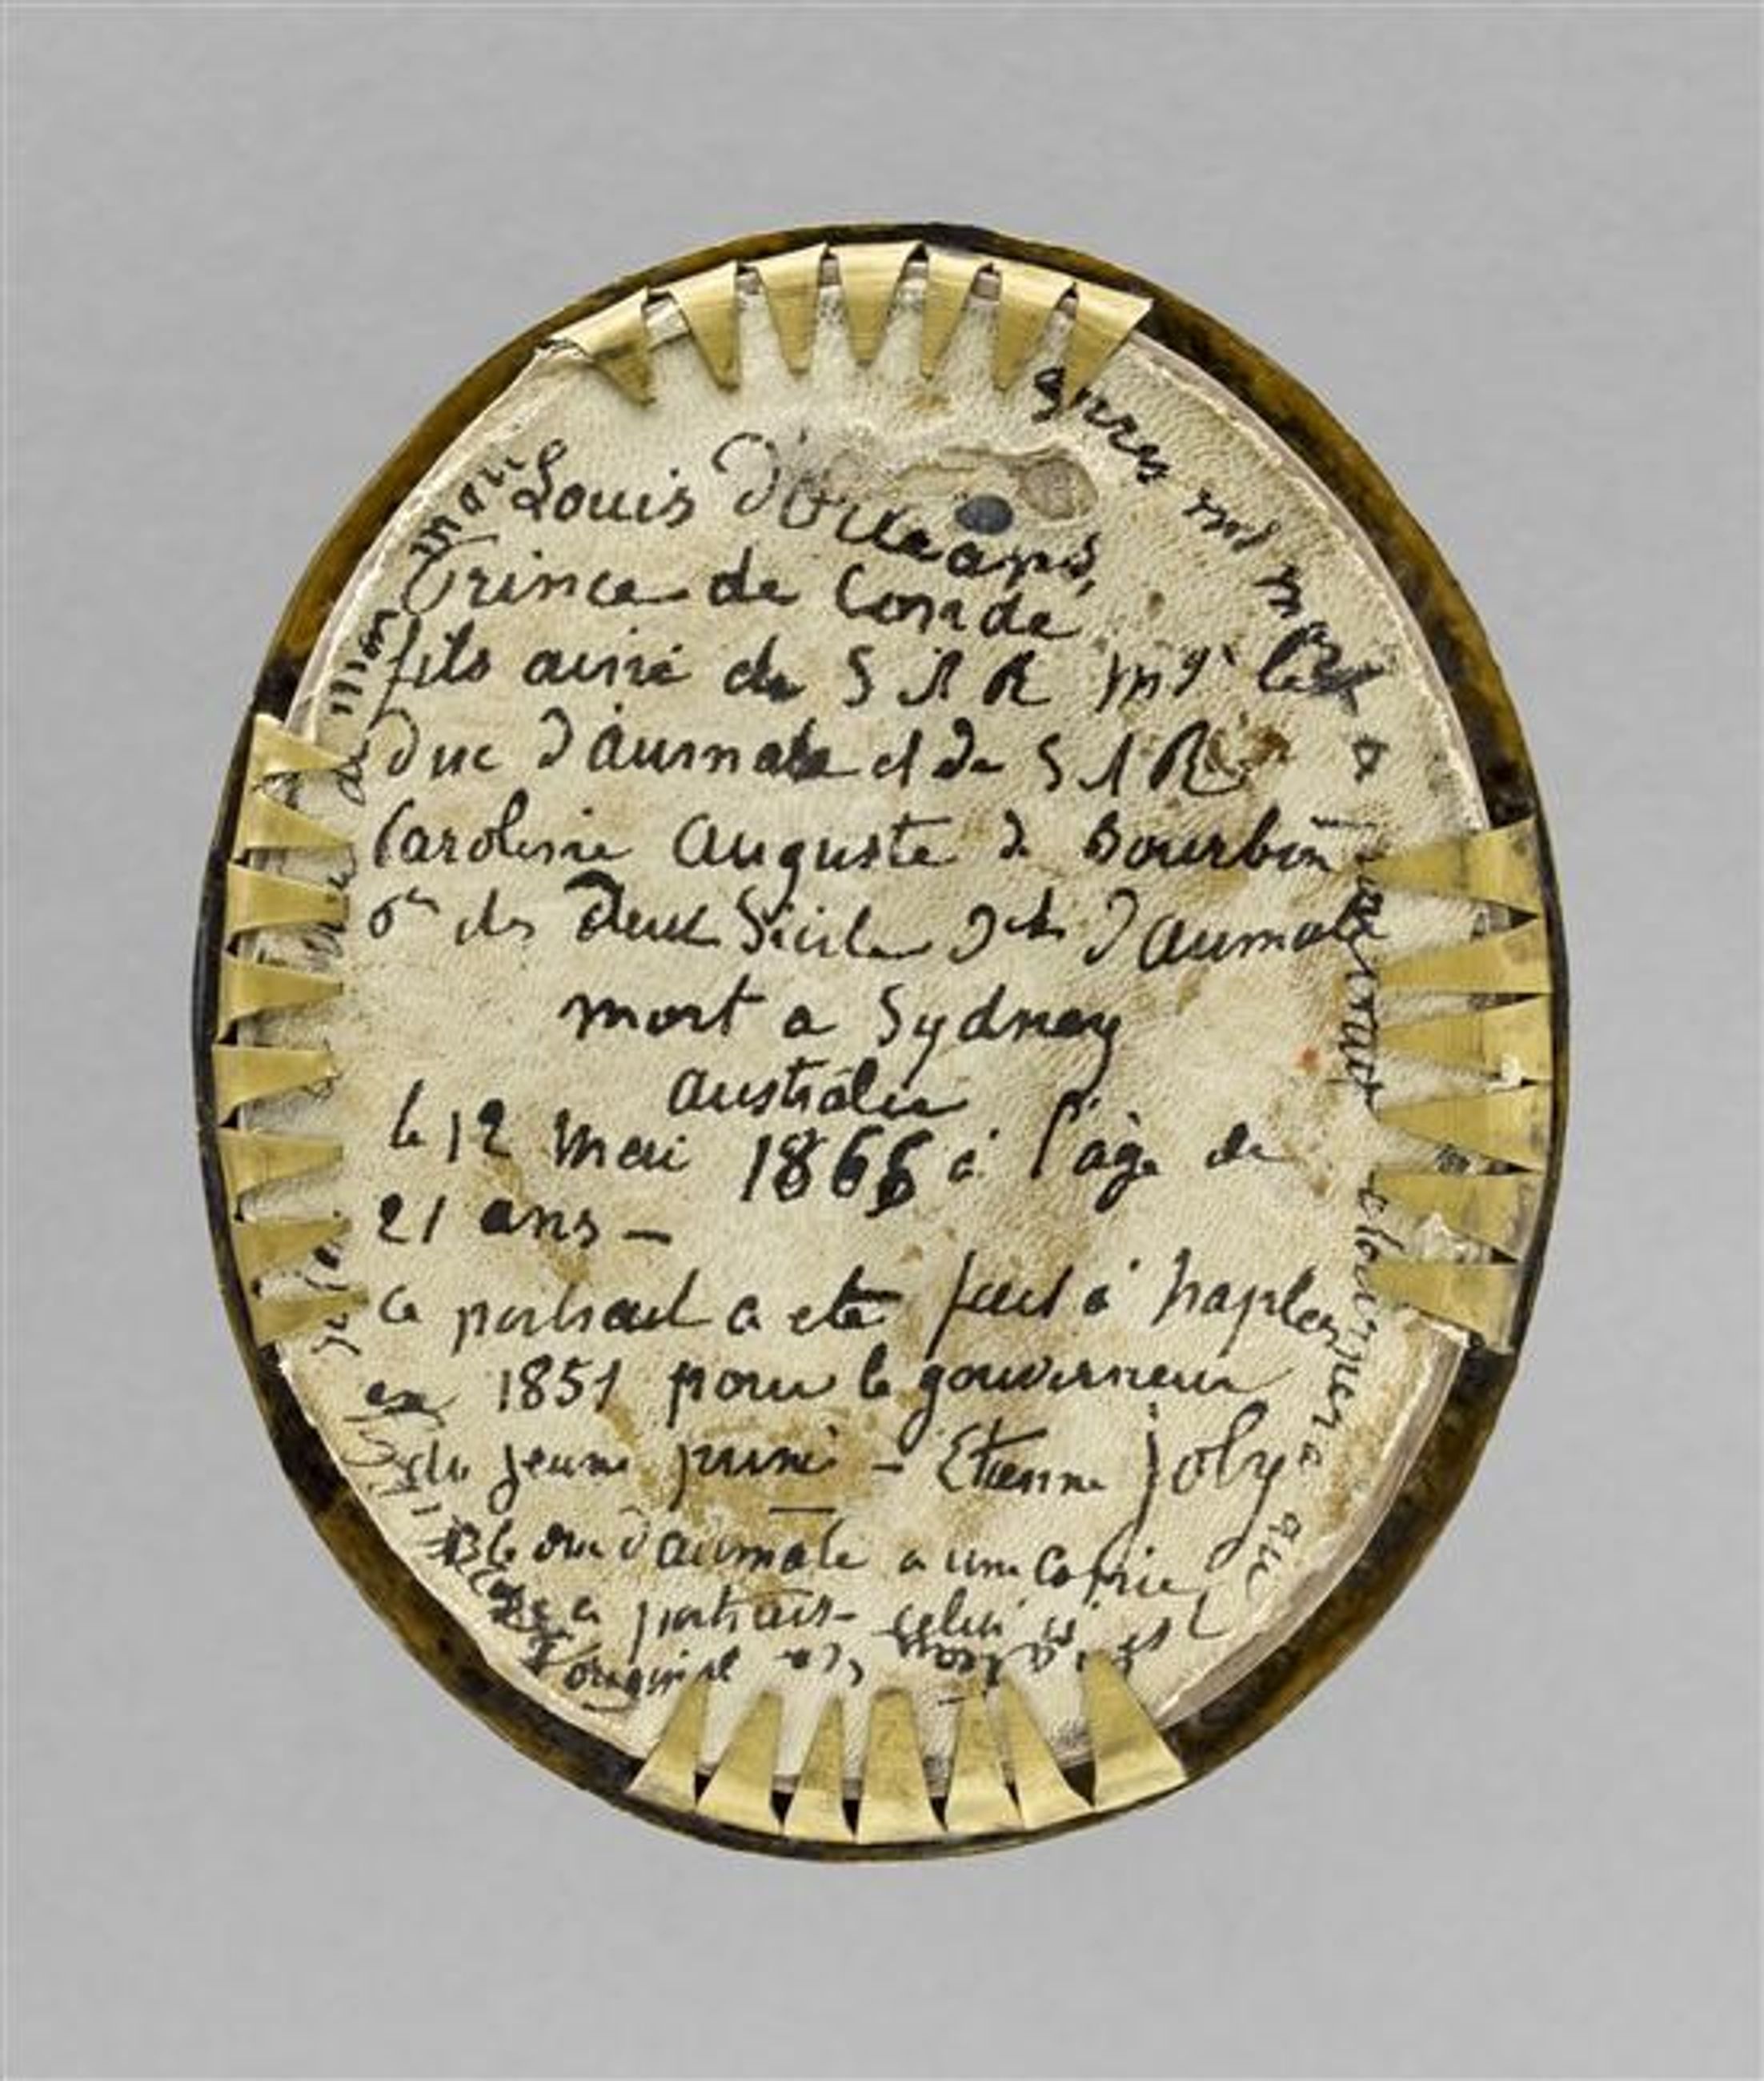 Louis d'Orléans,
Prince de Condé
fils ainé de S A R Mgr le
Duc d'aumale et de S A R
Caroline Auguste de Bourbon
des Deux Sicile d'aumale
mort a Sydney
australie
le 12 mai 1866 à l'age de
21 ans —
ce portrait a eté fait à Naples
en 1851 pour le gouverneur
du jeune prince - Etienne Joly
le duc d'aumale a une copie
de ce portrait - celui ci est
l'original
après ma mort
donner a
de mon mari